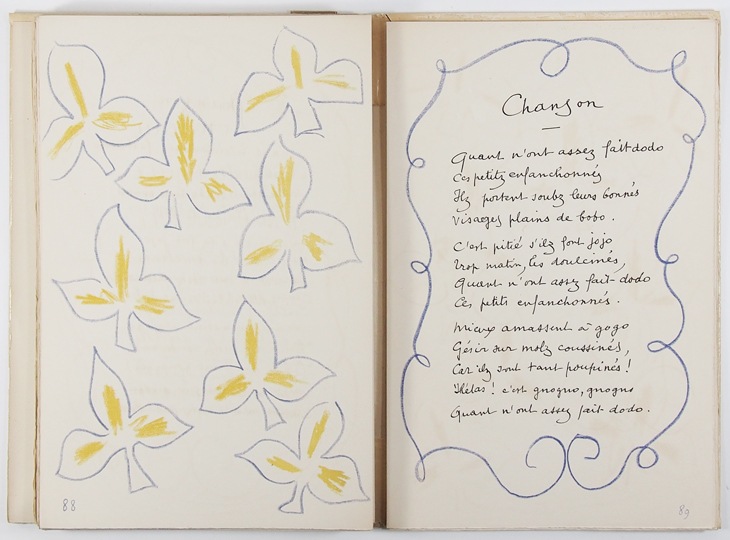 88
Chanson
Quant n'ont assez fait dodo
Ces petitz enfanchonnés
Ilz portent soubz leurs bonnés
Visages plains de bobo.
C'est pitié s'ilz font jojo
Trop matin, les doulcinés,
Quant n'ont assez fait-dodo
Ces petits enfanchonnés.
Mieux amassent à gogo
Gésir sur molz coussinés,
Car ilz sont tant poupinés !
Hélas ! c'est gnogno, gnogno
Quant n'ont assez fait dodo.
89